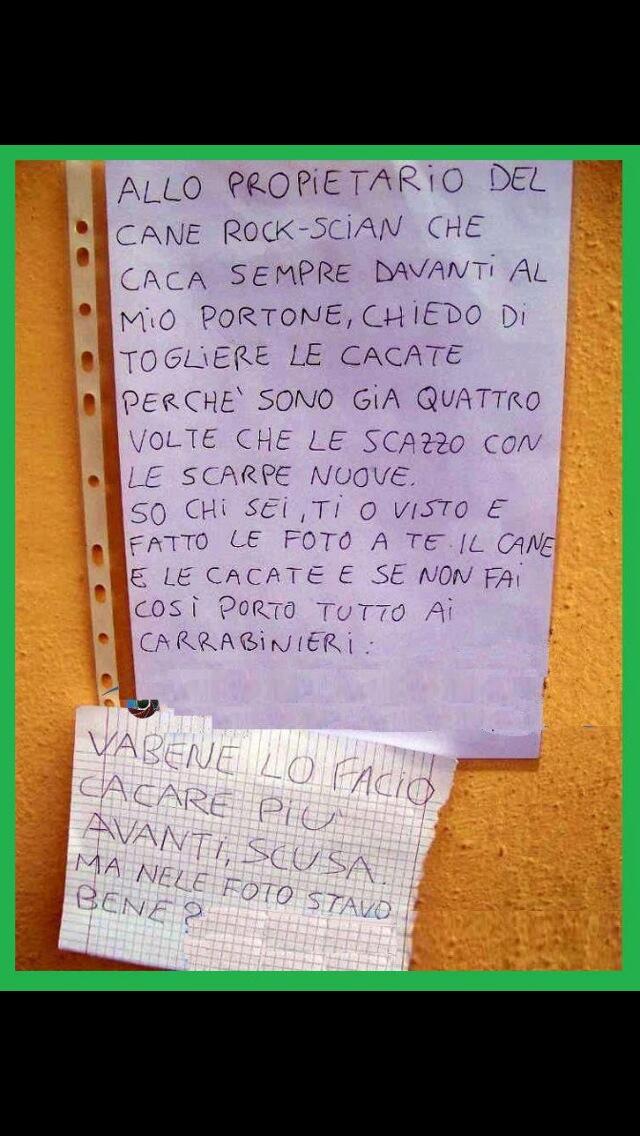 ALLO PROPIETARIO DEL
CANE ROCK-SCIAN CHE
CACA SEMPRE DAVANTI AL
MIO PORTONE, CHIEDO DI
TOGLIERE LE CACATE
PERCHE' SONO GIA QUATTRO
VOLTE CHE LE SCAZZO CON
LE SCARPE NUOVE.
SO CHI SEI, TI O VISTO E
FATTO LE FOTO A TE IL CANE
E LE CACATE E SE NON FAI
COSI PORTO TUTTO AI
CARRABINIERI.
VABENE LO FACIO
CACARE PIU'
AVANTI, SCUSA.
MA NELE FOTO STAVO
BENE?